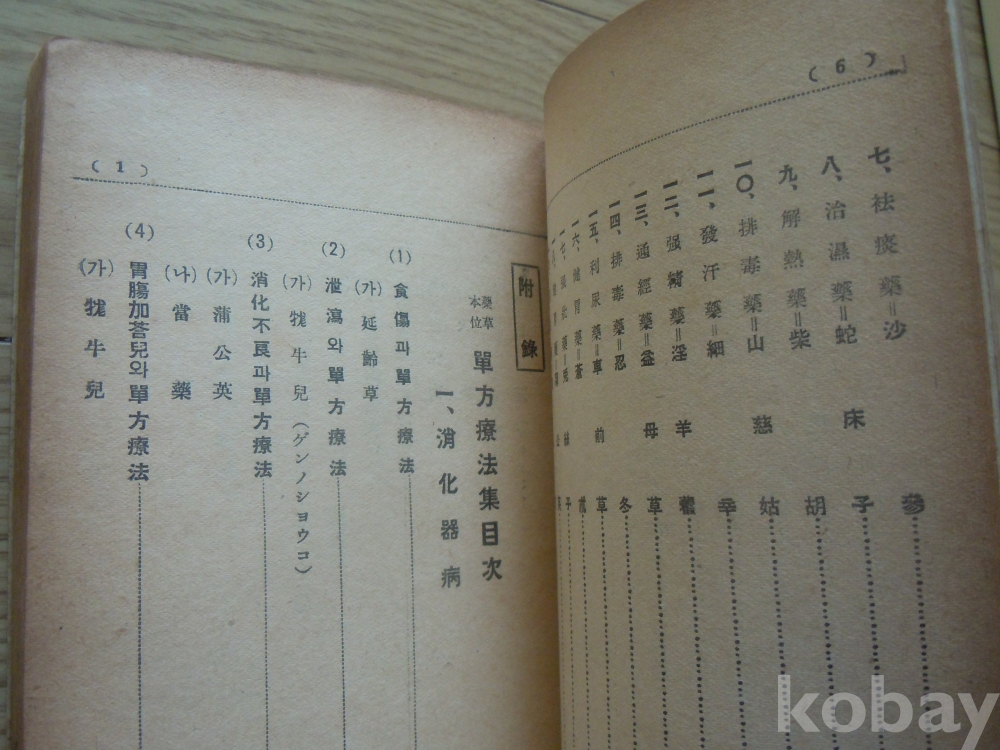 ( 6 )
七、祛痰藥＝沙參
八、治濕藥＝蛇床子
九、解熱藥＝柴胡
一〇、排毒藥＝山慈姑
一一、發汗藥＝細辛
一二、强精藥＝淫羊藿
一三、通經藥＝益母草
一四、排毒藥＝忍冬
一五、利尿藥＝車前草
一六、健胃藥＝蒼朮
( 1 )
附錄
藥草本位 單方療法集目次
一、消化器病
(1) 食傷과單方療法
(가) 延齡草
(2) 泄瀉와單方療法
(가) 牻牛兒(ゲンノショウコ)
(3) 消化不良과單方療法
(가) 蒲公英
(나) 當藥
(4) 胃腸加荅兒와單方療法
(가) 牻牛兒
kobay